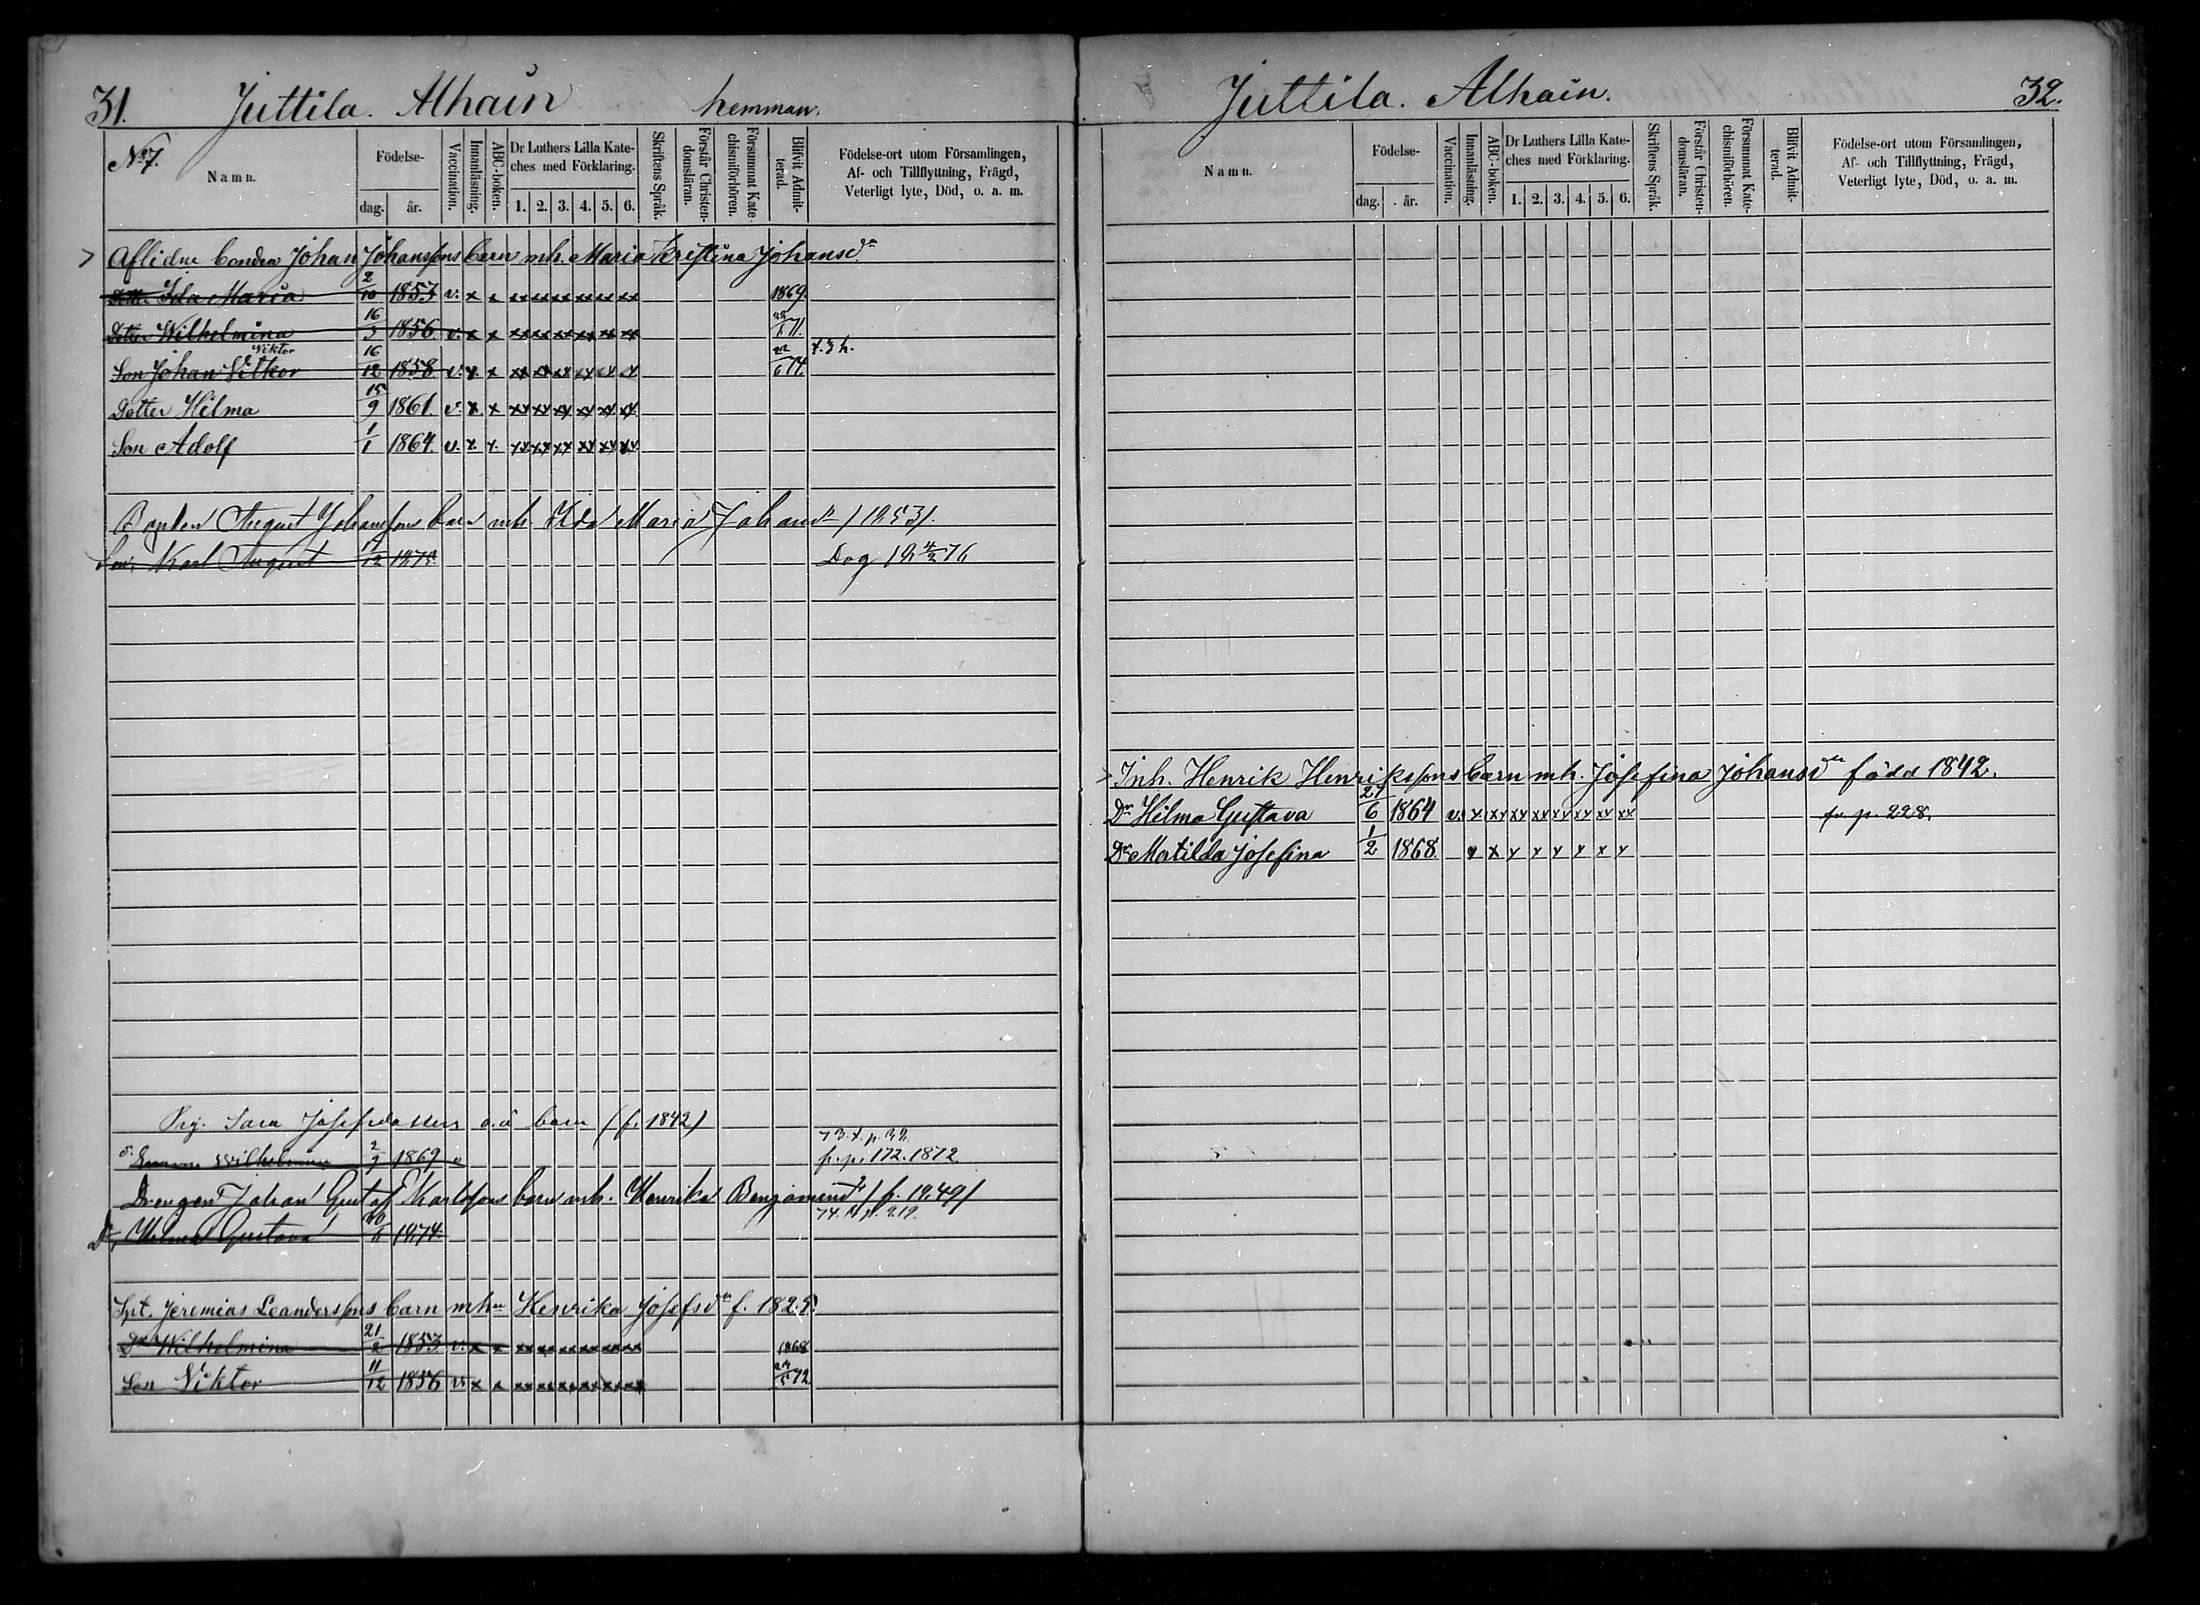 31. Juttila. Alhain hemman.
No 7.
Namn.
Födelse-
dag. år.
Vaccination.
Innanläsning.
ABC-boken.
Dr Luthers Lilla Kate-
ches med Förklaring.
1. 2. 3. 4. 5. 6.
Skriftens Språk.
Förstår Christen-
domsläran.
Försummat Kate-
chismiförhören.
Blifvit Admit-
terad.
Födelse-ort utom Församlingen,
Af- och Tillflyttning, Frägd,
Veterligt lyte, Död, o. a. m.
Aflidne bonden Johan Johanssons barn mh. Maria Kristina Johansdr
Dotter Ida Maria 2/10 1853 v. x x xx xx xx xx xx xx 1869.
Dotter Wilhelmina 16/3 1856 v. x x xx xx xx xx xx xx 71.
Viktor
Son Johan Vitkor 16/12 1858 v. x x xx xx xx xx xx xx 22/6 74.
Dotter Hilma 15/9 1861 v. x x xx xx xx xx xx xx
Son Adolf 1/1 1864. v. x. x. xx xx xx xx xx xx
Bonden August Johanssons barn mh. Ida Maria Johansdr /1853/.
Son Karl August 12 1875. Dog 18 4/2 76
Pig. Sara Josefsdotters o.ä barn (f. 1842)
73. t. p. 32.
d. Emma Wilhelmina 2/9 1869 v fr. p. 172. 1872.
Drengen Johan Gustaf Karlssons barn mh. Henrika Benjaminsdr / f. 1849/
74. p. 212.
Dr Hilma Gustava 20/6 1874.
Spt. Jeremias Leanderssons barn mhu Henrika Josefsdr f. 1825.
Dr Wilhelmina 21/2 1853 v. x x xx xx xx xx xx xx 1868
Son Viktor 11/12 1856 v. x x xx xx xx xx xx xx 5 72
Juttila. Alhain. 32.
Namn.
Födelse-
dag. år.
Vaccination.
Innanläsning.
ABC-boken.
Dr Luthers Lilla Kate-
ches med Förklaring.
1. 2. 3. 4. 5. 6.
Skriftens Språk.
Förstår Christen-
domsläran.
Försummat Kate-
chismiförhören.
Blifvit Admit-
terad.
Födelse-ort utom Församlingen,
Af- och Tillflyttning, Frägd,
Veterligt lyte, Död, o. a. m.
Inh. Henrik Henrikssons barn mh. Josefina Johansdr född 1842.
Dr Hilma Gustava 27/6 1864 v. x. xx xx xx xx xx xx xx fr. p. 228.
Dr Matilda Josefina 1/2 1868. x x x x x x x x